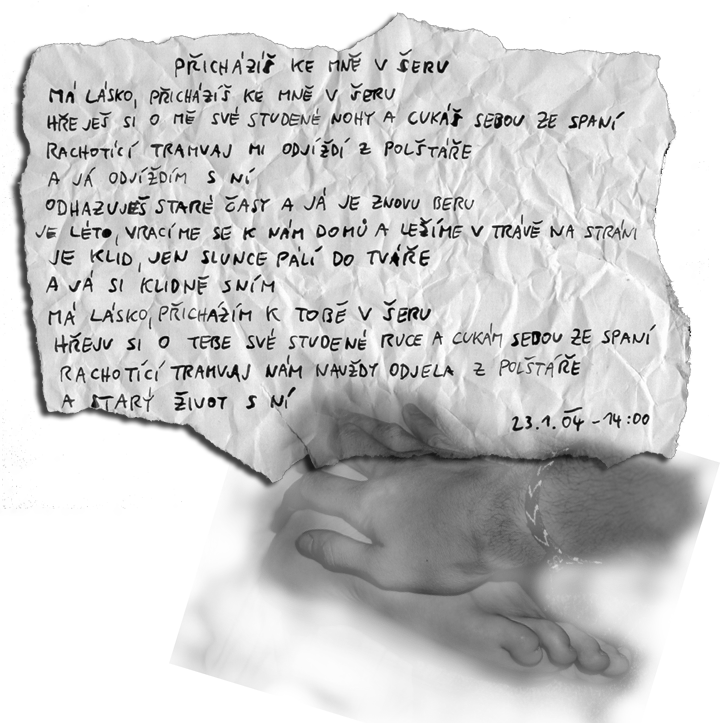 PŘICHÁZÍŠ KE MNĚ V ŠERU
MÁ LÁSKO, PŘICHÁZÍŠ KE MNĚ V ŠERU
HŘEJEŠ SI O MĚ SVÉ STUDENÉ NOHY A CUKÁŠ SEBOU ZE SPANÍ
RACHOTÍCÍ TRAMVAJ MI ODJÍŽDÍ Z POLŠTÁŘE
A JÁ ODJÍŽDÍM S NÍ
ODHAZUJEŠ STARÉ ČASY A JÁ JE ZNOVU BERU
JE LÉTO, VRACÍME SE K NÁM DOMŮ A LEŠÍME V TRÁVĚ NA STRÁNI
JE KLID, JEN SLUNCE PÁLÍ DO TVÁŘE
A JÁ SI KLIDNĚ SNÍM
MÁ LÁSKO, PŘICHÁZÍM K TOBĚ V ŠERU
HŘEJU SI O TEBE SVÉ STUDENÉ RUCE A CUKÁM SEBOU ZE SPANÍ
RACHOTÍCÍ TRAMVAJ NÁM NAVŽDY ODJELA Z POLŠTÁŘE
A STARÝ ŽIVOT S NÍ
23.1.04 - 14:00